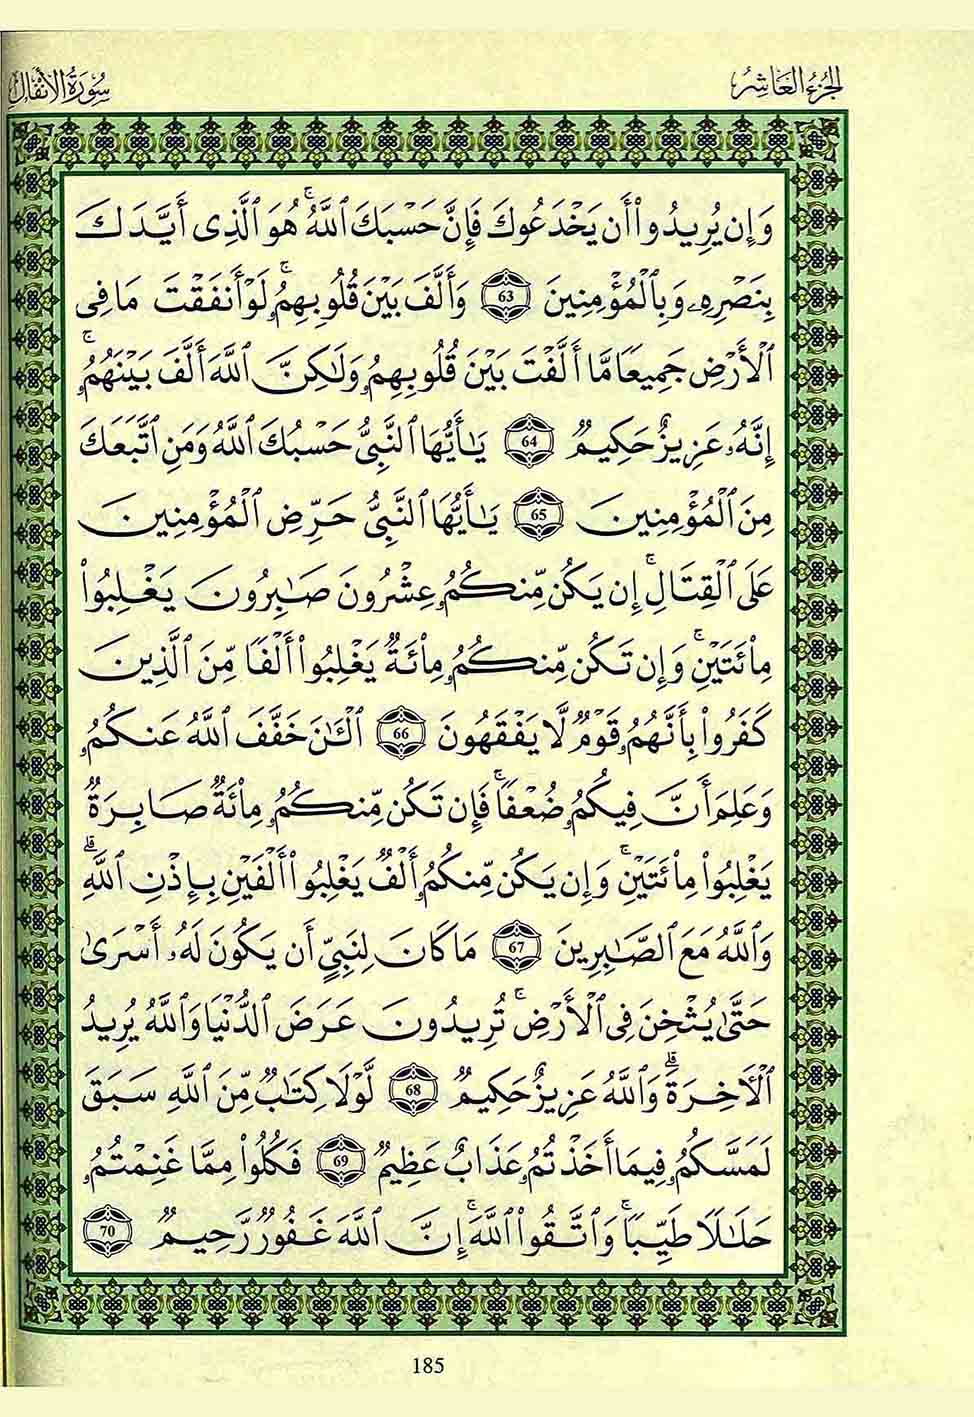 الجزء العاشر
سورة الأنفال
وَإِن يُرِيدُوا۟ أَن يَخْدَعُوكَ فَإِنَّ حَسْبَكَ ٱللَّهُ ۚ هُوَ ٱلَّذِى أَيَّدَكَ
بِنَصْرِهِۦ وَبِٱلْمُؤْمِنِينَ 63 وَأَلَّفَ بَيْنَ قُلُوبِهِمُۥ ۚ لَوْ أَنفَقْتَ مَا فِى
ٱلْأَرْضِ جَمِيعًا مَّا أَلَّفْتَ بَيْنَ قُلُوبِهِمُۥ وَلَٰكِنَّ ٱللَّهَ أَلَّفَ بَيْنَهُمُۥ ۚ
إِنَّهُۥ عَزِيزٌ حَكِيمٌ 64 يَٰأَيُّهَا ٱلنَّبِىُّ حَسْبُكَ ٱللَّهُ وَمَنِ ٱتَّبَعَكَ
مِنَ ٱلْمُؤْمِنِينَ 65 يَٰأَيُّهَا ٱلنَّبِىُّ حَرِّضِ ٱلْمُؤْمِنِينَ
عَلَى ٱلْقِتَالِ ۚ إِن يَكُن مِّنكُمُۥ عِشْرُونَ صَٰبِرُونَ يَغْلِبُوا۟
مِا۟ئَتَيْنِ ۚ وَإِن تَكُن مِّنكُمُۥ مِا۟ئَةٌ يَغْلِبُوا۟ أَلْفًا مِّنَ ٱلَّذِينَ
كَفَرُوا۟ بِأَنَّهُمُۥ قَوْمٌ لَّا يَفْقَهُونَ 66 ٱلْـَٰٔنَ خَفَّفَ ٱللَّهُ عَنكُمُۥ
وَعَلِمَ أَنَّ فِيكُمُۥ ضُعْفًا ۚ فَإِن تَكُن مِّنكُمُۥ مِا۟ئَةٌ صَابِرَةٌ
يَغْلِبُوا۟ مِا۟ئَتَيْنِ ۚ وَإِن يَكُن مِّنكُمُۥ أَلْفٌ يَغْلِبُوا۟ أَلْفَيْنِ بِإِذْنِ ٱللَّهِ ۗ
وَٱللَّهُ مَعَ ٱلصَّٰبِرِينَ 67 مَا كَانَ لِنَبِىٍّ أَن يَكُونَ لَهُۥ أَسْرَىٰ
حَتَّىٰ يُثْخِنَ فِى ٱلْأَرْضِ ۚ تُرِيدُونَ عَرَضَ ٱلدُّنْيَا وَٱللَّهُ يُرِيدُ
ٱلْأَخِرَةَ ۗ وَٱللَّهُ عَزِيزٌ حَكِيمٌ 68 لَّوْلَا كِتَٰبٌ مِّنَ ٱللَّهِ سَبَقَ
لَمَسَّكُمُۥ فِيمَا أَخَذْتُمُۥ عَذَابٌ عَظِيمٌ 69 فَكُلُوا۟ مِمَّا غَنِمْتُمُۥ
حَلَٰلًا طَيِّبًا ۚ وَٱتَّقُوا۟ ٱللَّهَ ۚ إِنَّ ٱللَّهَ غَفُورٌ رَّحِيمٌ 70
185